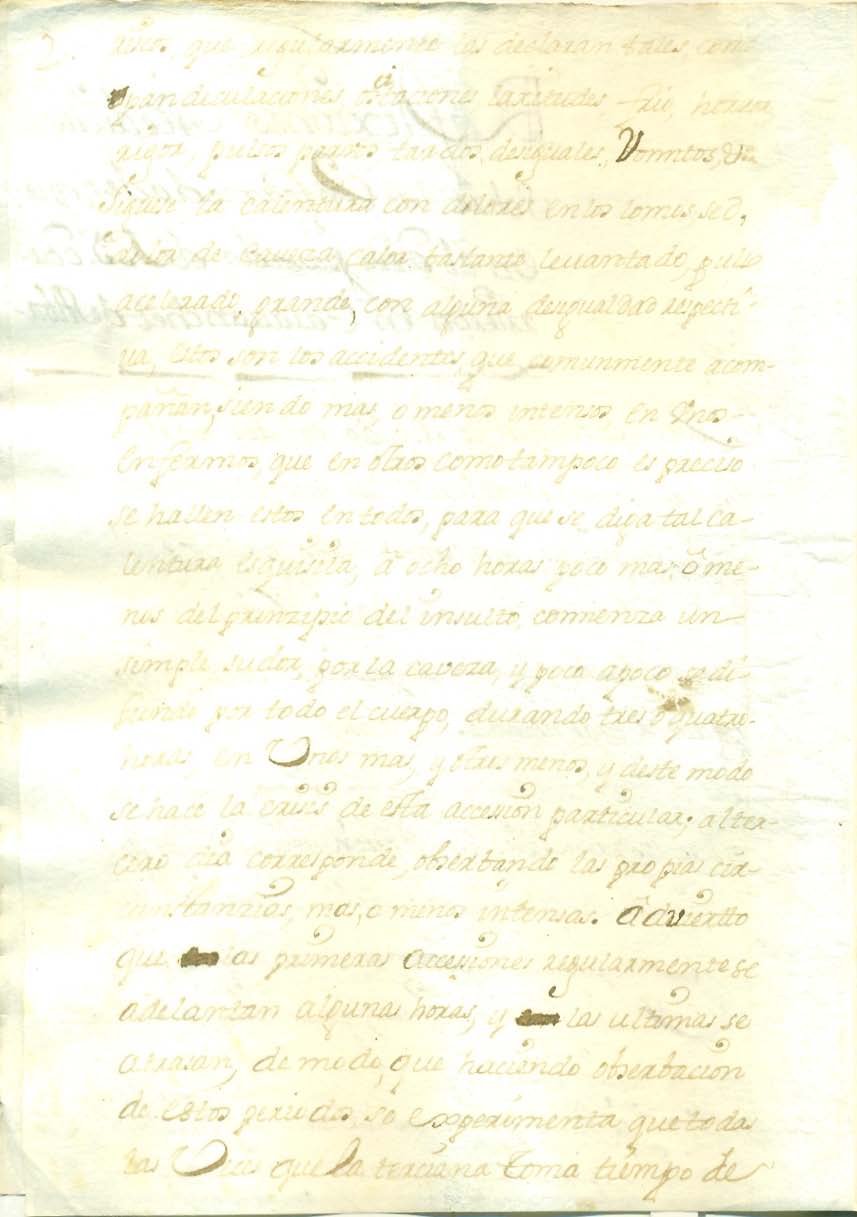 que regularmente las declaran tales, como
pandiculaciones, oscitaciones, laxitudes, frio, horror
rigor, pulsos parvos tardos, desiguales, Vomitos,
Sigue la calentura con dolores en los lomos sed,
dolor de caveza calor bastante levantado, pulso
acelerado, grande, con alguna desigualdad respecti-
va, estos son los accidentes, que comunmente acom-
pañan, siendo mas, o menos intensos en Unos
enfermos, que en otros como tampoco es preciso
se hallen estos en todos, para que se diga tal ca-
lentura esquisita, â ocho horas poco mas ô me-
nos del prinzipio del insulto, comienza un
simple sudor, por la caveza, y poco apoco se di-
funde por todo el cuerpo, durando tres o quatro
horas, en Unos mas, y otros menos, y deste modo
se hace la crisis de esta accession particular; alter-
cero dia corresponde, obserbando las propias cir-
cunstanzias, mas, o menos intensas. âdvierto
que las primeras accessiones regularmente se
adelantan algunas horas, y las ultimas se
atrasan, de modo, que haciendo obserbacion
de estos periodos, se experimenta que todas
las Veces que la terciana toma tiempo de